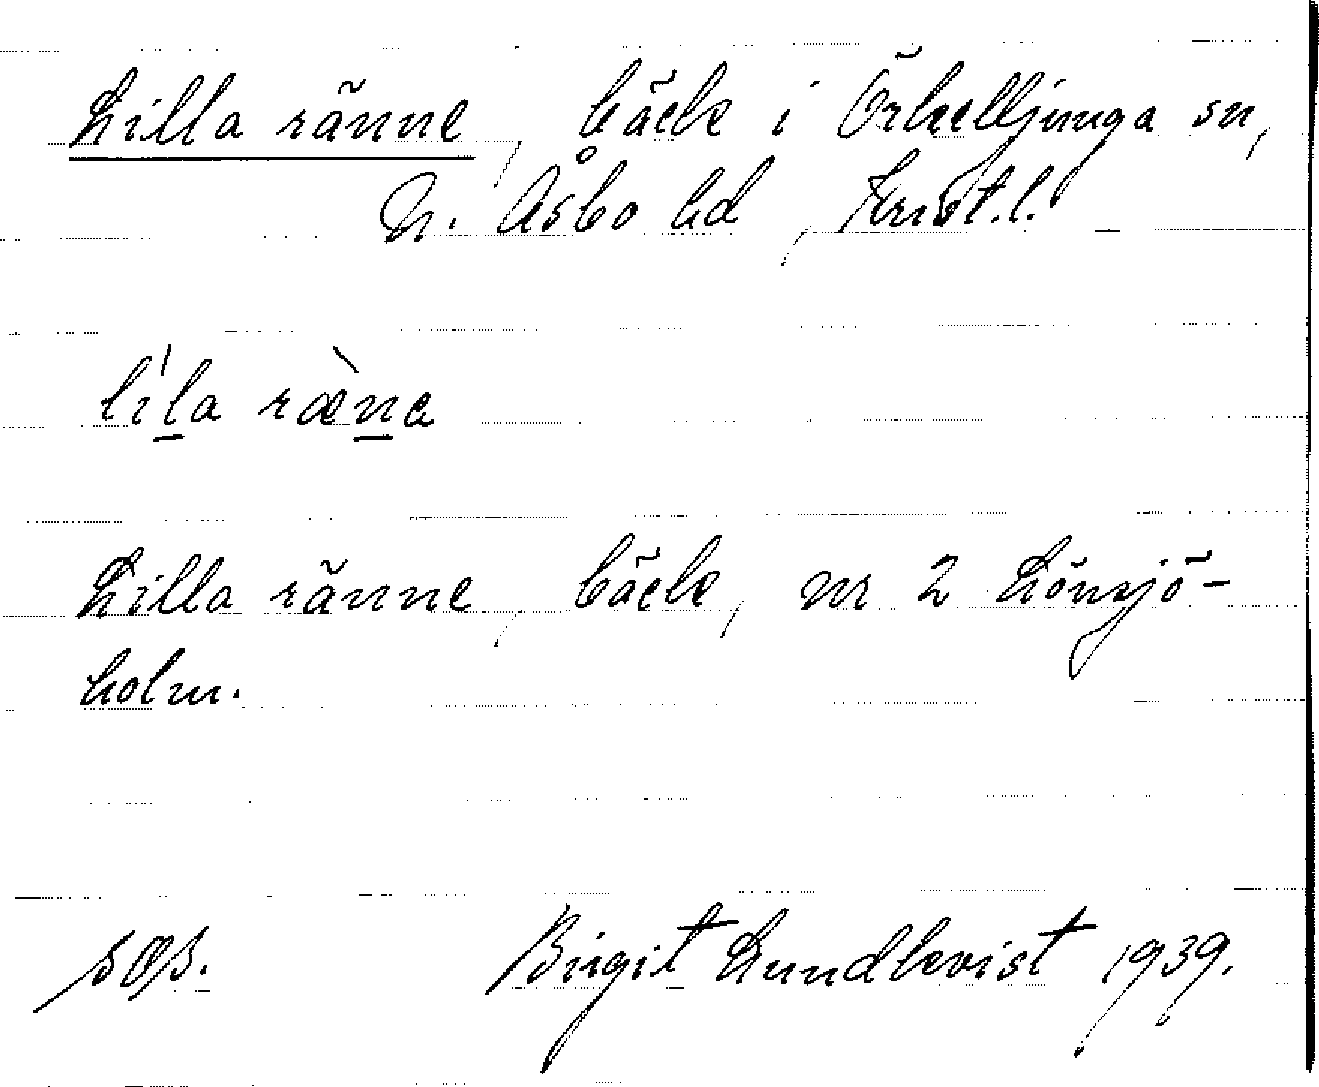 Lilla ränne, bäck i Örkelljunga sn,
N. Åsbo hd, Krist.l.
li̍l̲a ræ̀n̲e
Lilla ränne, bäck, nr 2 Lönsjö-
holm.
Birgit Lundkvist 1939.